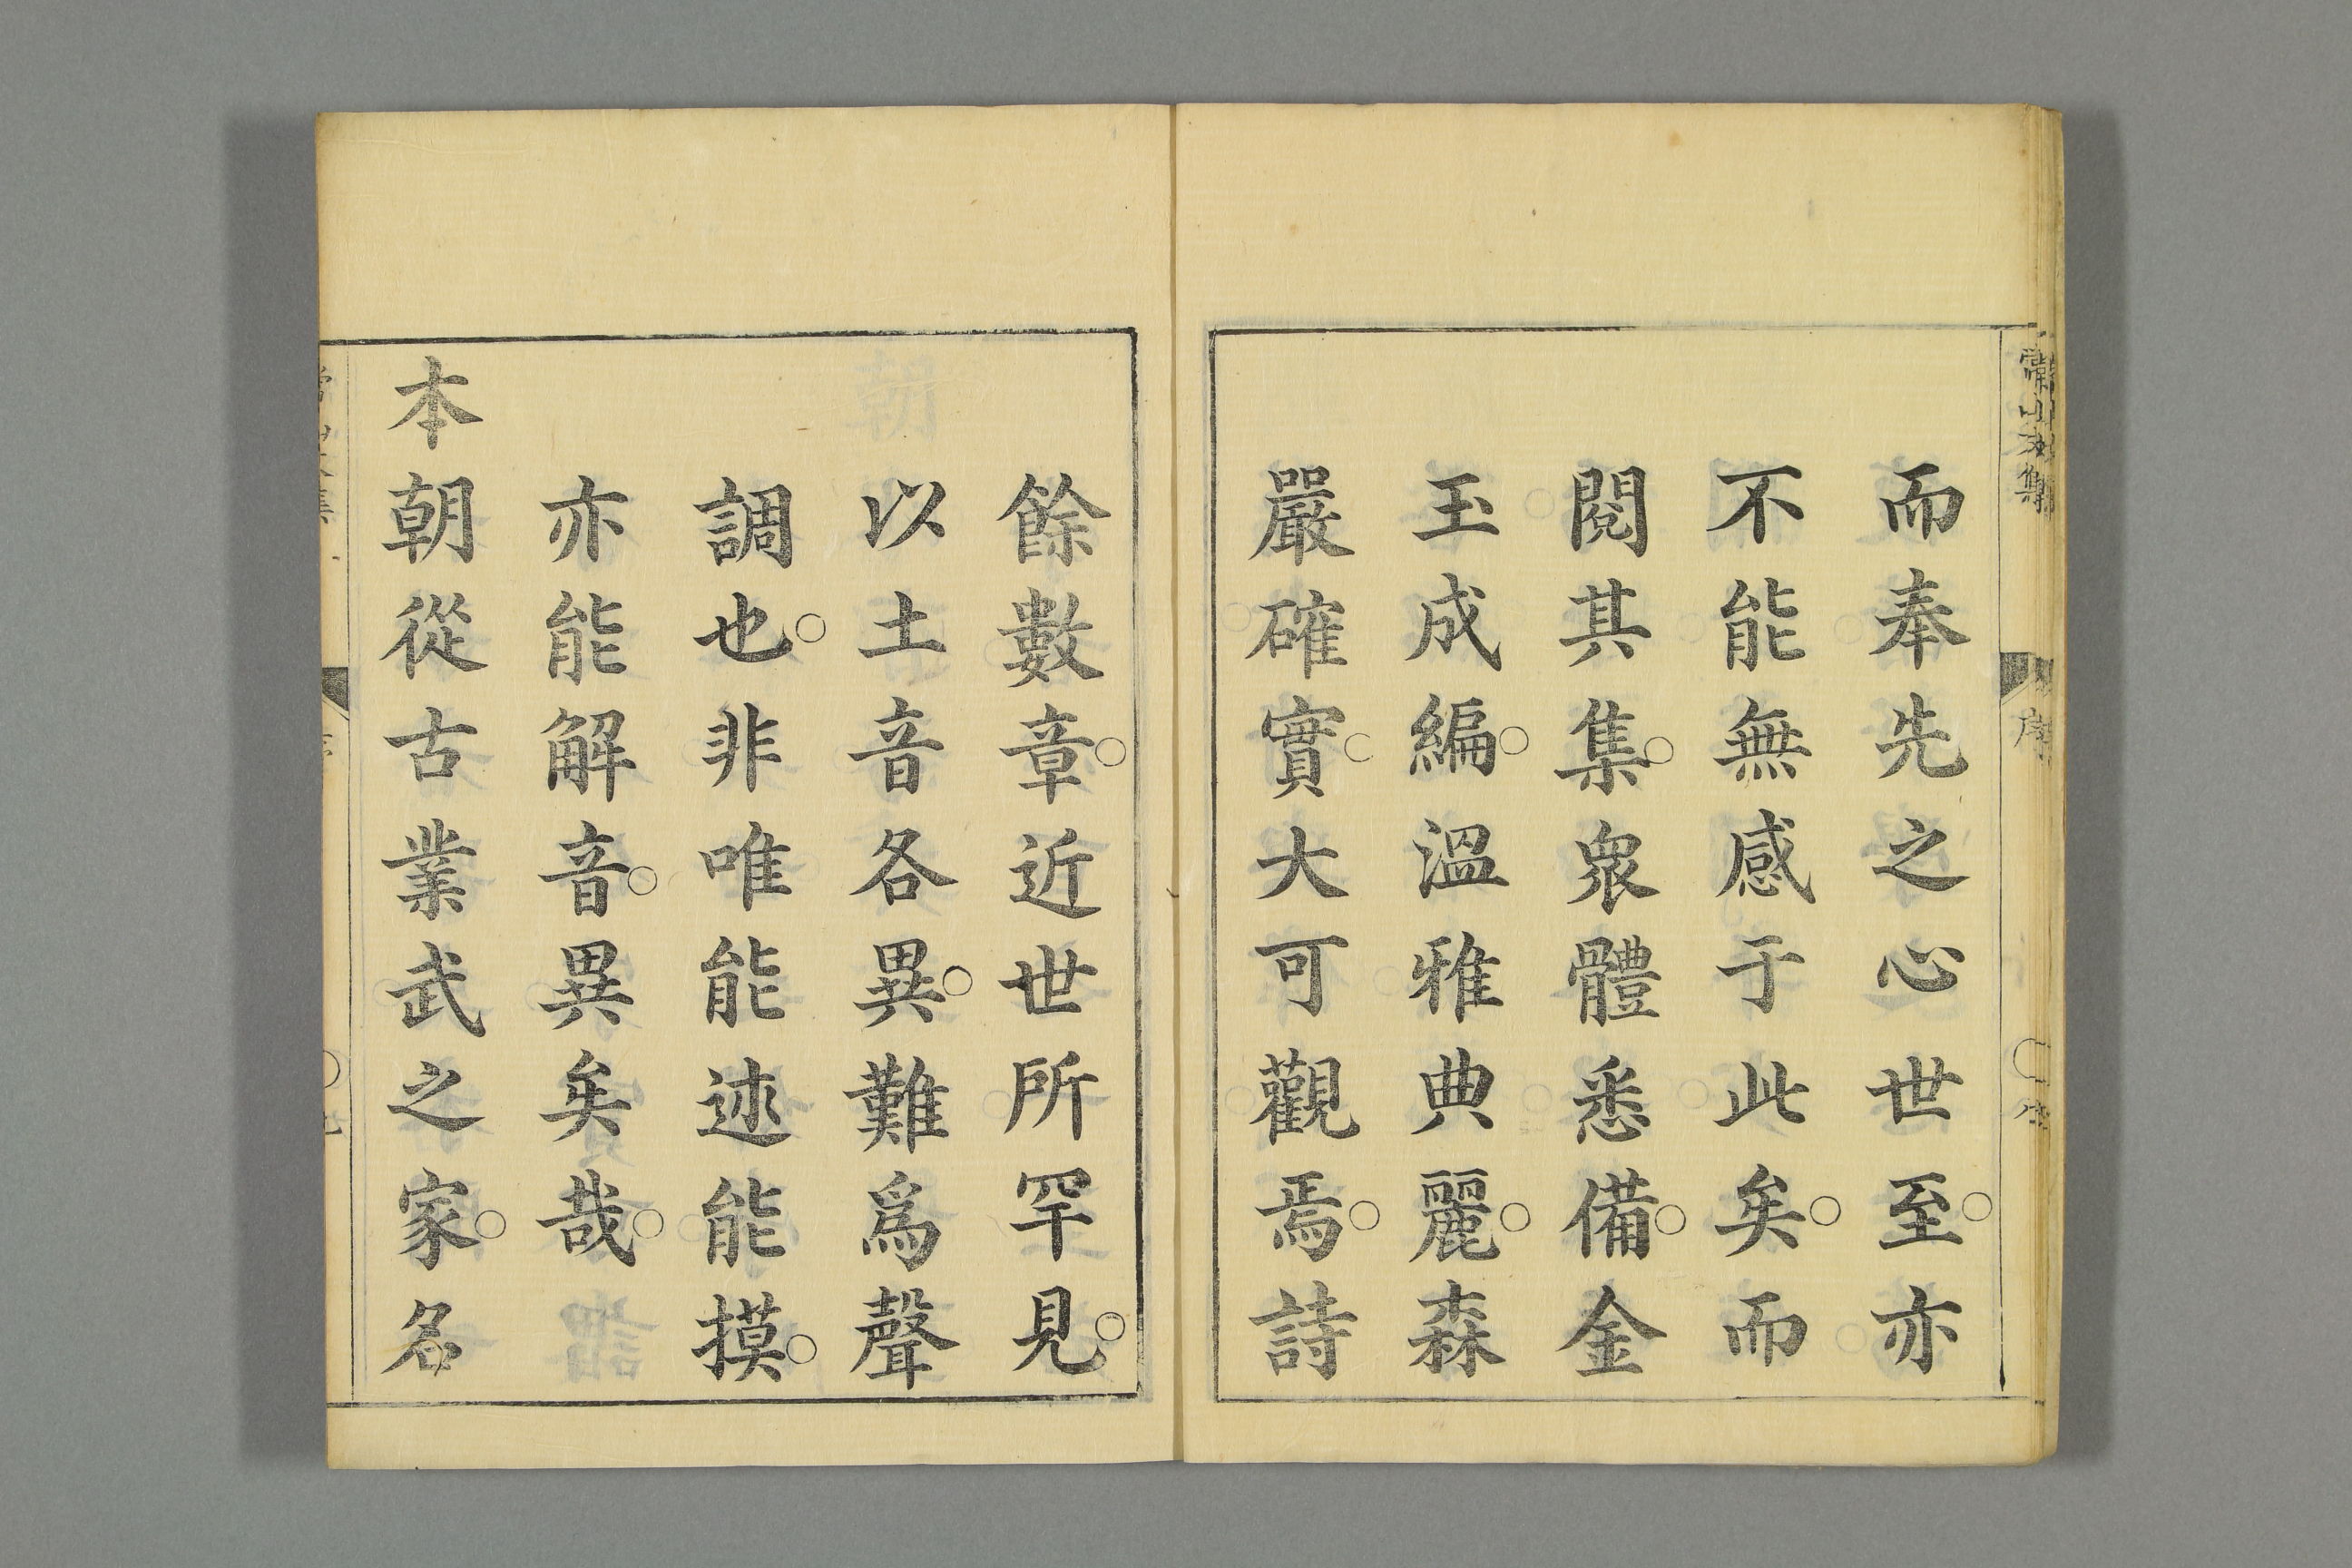 而奉先之心世至。亦
不能無感于此矣。而
閱其集。衆體悉備。金
玉成編。溫雅典麗。森
嚴確實。大可觀焉。詩
餘數章。近世所罕見。
以土音各異。難爲聲
調也。非唯能述能摸。
亦能解音。異矣哉。
本朝從古業武之家。名